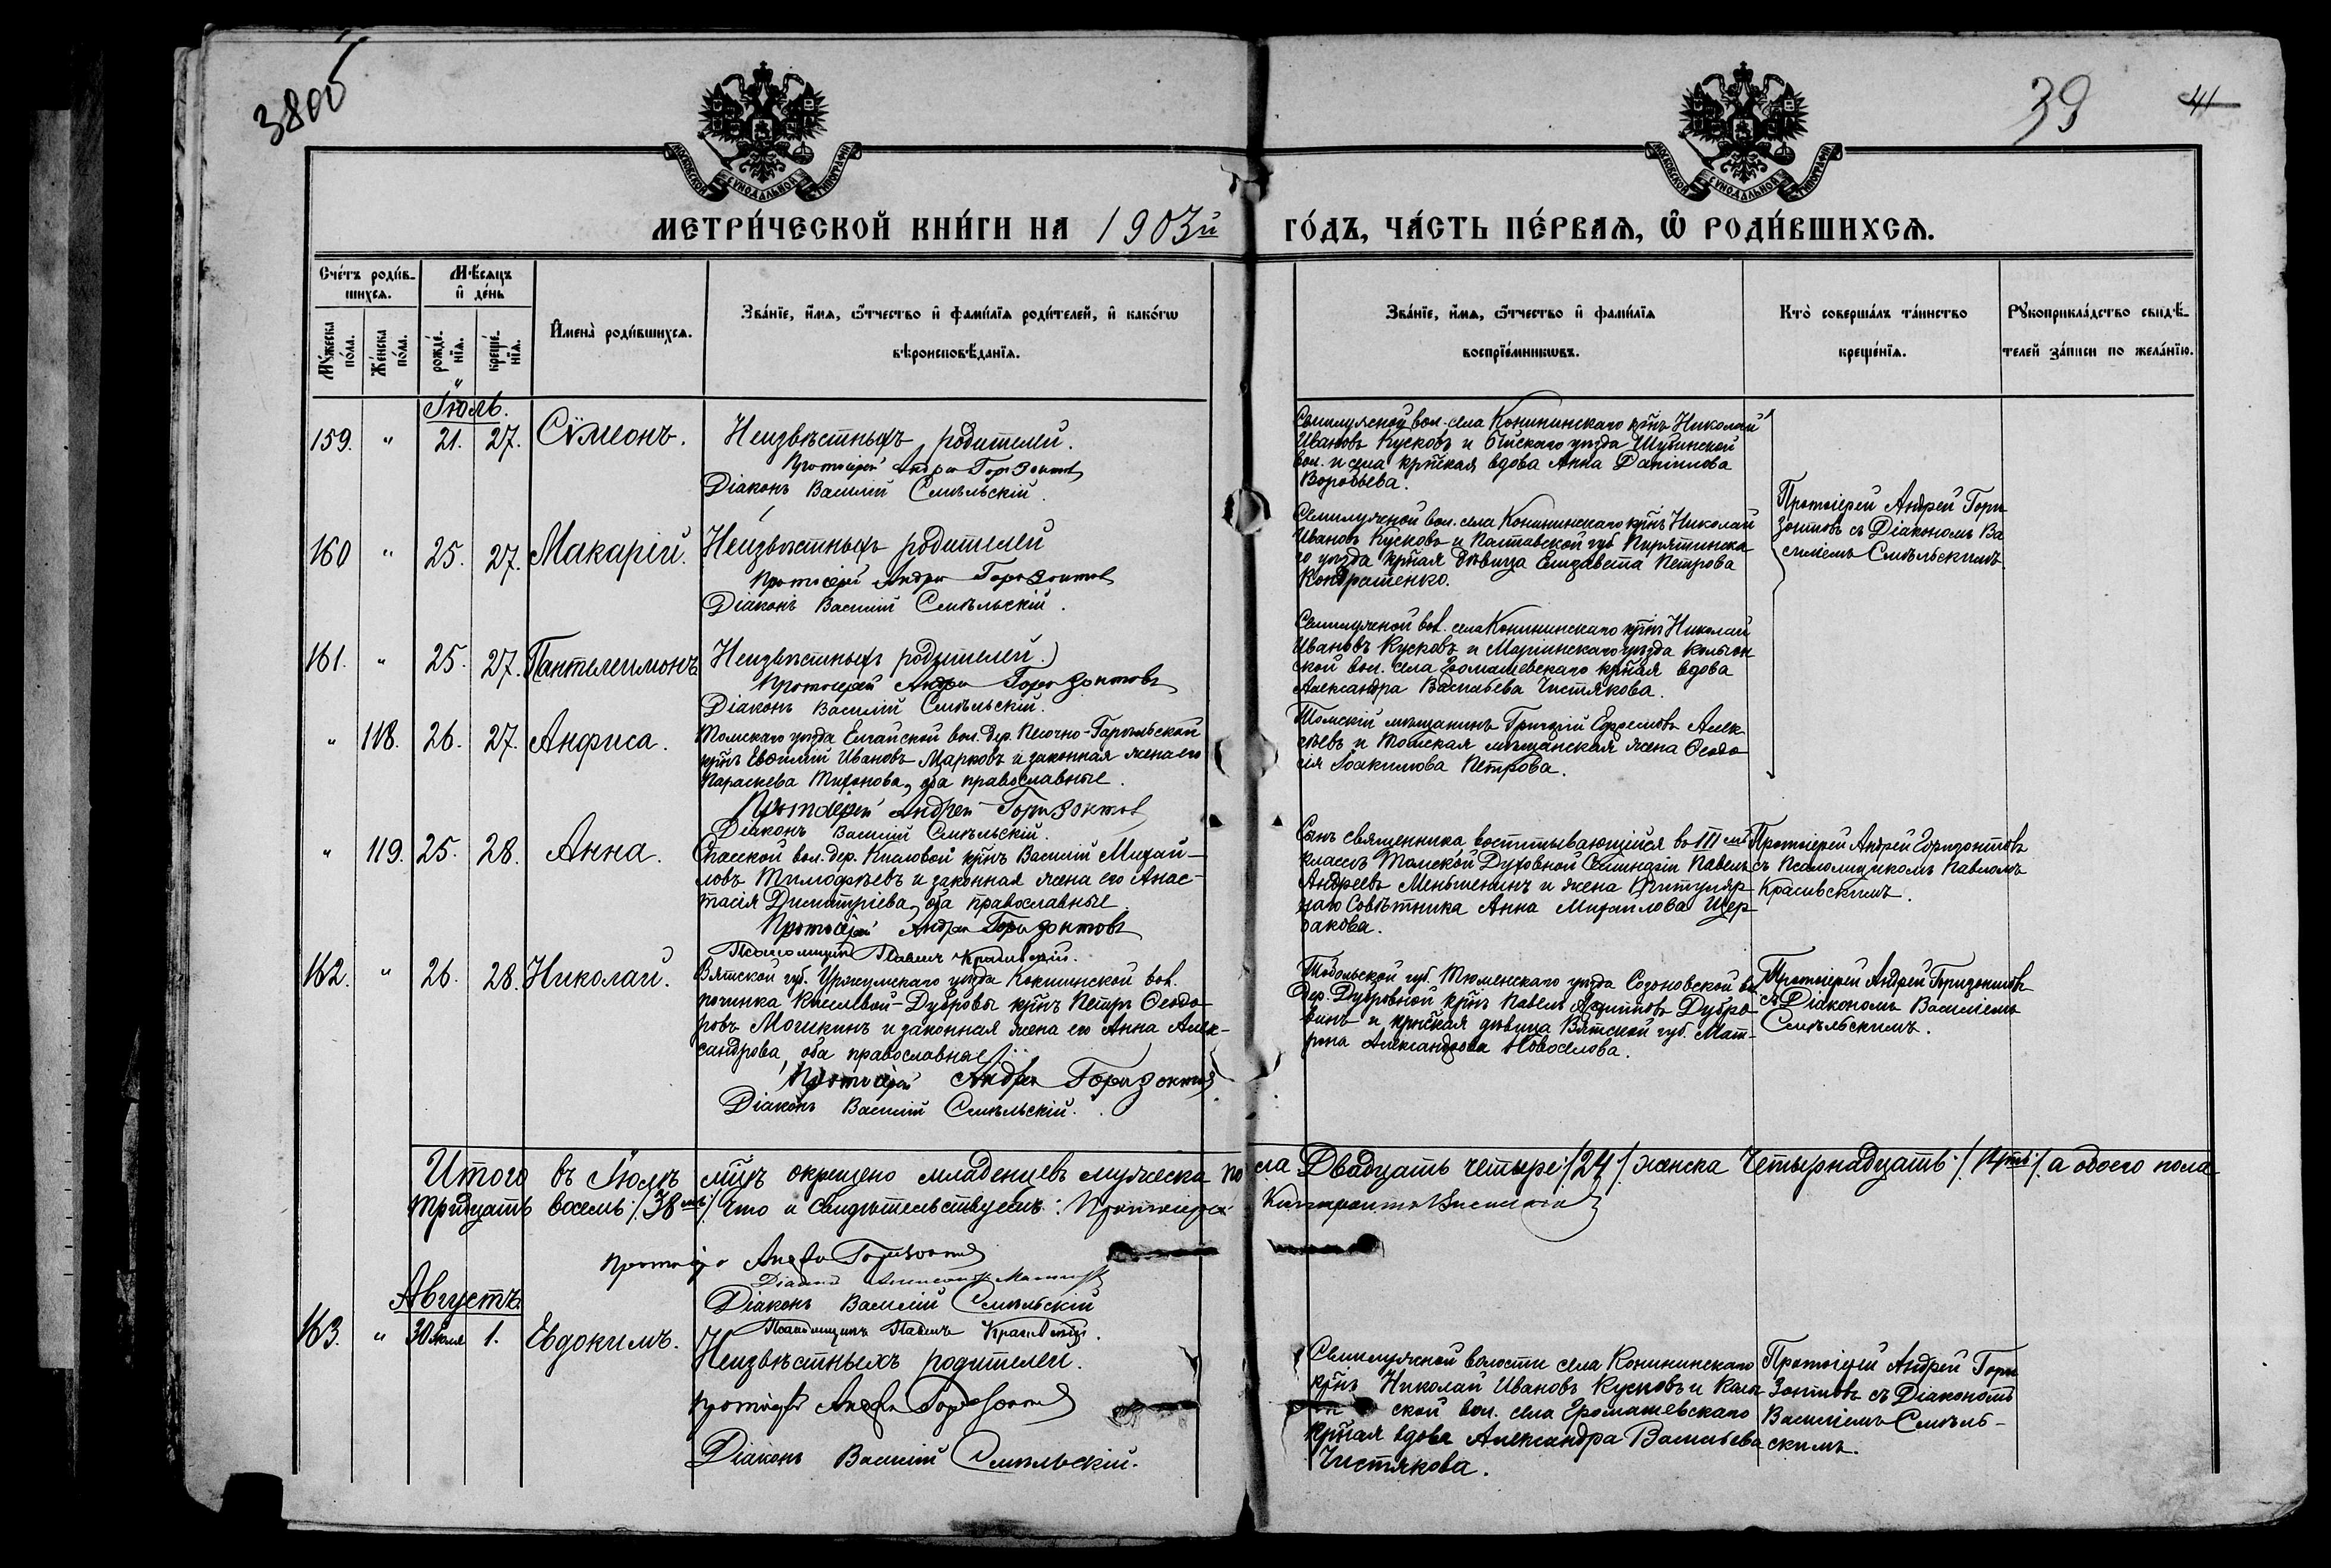 38об
39
41
МОСКОВСКОЙ СѴНОДАЛЬНОЙ ТИПОГРАФІИ
МОСКОВСКОЙ СѴНОДАЛЬНОЙ ТИПОГРАФІИ
МЕТРИ́ЧЕСКОЙ КНИ́ГИ НА 1903й ГО́ДЪ, ЧА́СТЬ ПЕ́РВАѦ, Ѡ҆ РОДИ́ВШИХСѦ.
Сче́тъ роди́в-
шихсѧ.
Мѣ́сѧцъ
и҆ де́нь
Мꙋ́жеска
по́ла.
Же́нска
по́ла.
рожде́-
нїѧ.
креще́-
нїѧ.
И҆мена̀ роди́вшихсѧ.
Зва́нїе, и҆́мѧ, ѻ҆́тчество и҆ фами́лїѧ роди́телей, и҆ како́гѡ
вѣроисповѣ́данїѧ.
Зва́нїе, и҆́мѧ, ѻ҆́тчество и҆ фами́лїѧ
воспрїе́мникѡвъ.
Кто̀ соверша́лъ та́инство
креще́нїѧ.
Рꙋкоприкла́дство свидѣ́-
телей за́писи по жела́нїю.
Іюль.
159. " 21. 27. Сѵмеонъ.
Неизвѣстныхъ родителей.
Протоіерей Андрей Горизонтовъ
Діаконъ Василій Смѣльскій.
Семилужной вол. села Конининскаго кр̃нъ Николай
Ивановъ Кусковъ и Бійскаго уѣзда Шубинской
вол. и села кр̃нская вдова Анна Даніилова
Воробьева.
Протоіерей Андрей Гори
зонтовъ съ Діакономъ Ва
силіемъ Смѣльскимъ
160 " 25. 27. Макарій.
Неизвѣстныхъ родителей
Протоіерей Андрей Горизонтовъ
Діаконъ Василій Смѣльскій.
Семилужной вол. села Конининскаго кр̃нъ Николай
Ивановъ Кусковъ и Полтавской губ. Пирятинска
го уѣзда кр̃ная дѣвица Елизавета Петрова
Кондратенко.
161. " 25. 27. Пантелеимонъ
Неизвѣстныхъ родителей.
Протоіерей Андрей Горизонтовъ
Діаконъ Василій Смѣльскій.
Семилужной вол. села Конининскаго кр̃нъ Николай
Ивановъ Кусковъ и Маріинскаго уѣзда Колыон
ской вол. села Громашевскаго кр̃ная вдова
Александра Васильева Чистякова.
" 118. 26. 27. Анфиса.
Томскаго уѣзда Елгайской вол. дер. Песочно-Гарѣльской
кр̃нъ Евфимій Ивановъ Марковъ и законная жена его
Параскева Тихонова, оба православные.
Протоіерей Андрей Горизонтовъ
Діаконъ Василій Смѣльскій.
Томскій мѣщанинъ Григорій Ефремовъ Алек
сѣевъ и томская мѣщанская жена Ѳеодо
сія Іоакимова Петрова.
" 119. 25. 28. Анна.
Спасской вол. дер. Кисловой кр̃нъ Василій Михай-
ловъ Тимофѣевъ и законная жена его Анас-
тасія Димитріева, оба православные.
Протоіерей Андрей Горизонтовъ
Псаломщикъ Павелъ Красивскій.
Сынъ священника, воспитывающійся въ III мъ
классѣ Томской Духовной Семинаріи Павелъ
Андреевъ Меньшенинъ и жена Титуляр
наго Совѣтника Анна Михаилова Щер
бакова.
Протоіерей Андрей Горизонтовъ
съ Псаломщикомъ Павломъ
Красивскимъ.
162. " 26. 28. Николай.
Вятской губ. Уржумскаго уѣзда Кокшинской вол.
починка Киселевой-Дубровы кр̃нъ Петръ Ѳеодо-
ровъ Мошкинъ и законная жена его Анна Алек-
сандрова, оба православные
Протоіерей Андрей Горизонтовъ
Діаконъ Василій Смѣльскій.
Тобольской губ. Тюменскаго уѣзда Созоновской вол
дер. Дубровной кр̃нъ Павелъ Дубро
винъ и кр̃нская дѣвица Вятской губ. Мат-
рона Александрова Новоселова.
Протоіерей Андрей Горизонтовъ
съ Діакономъ Василіемъ
Смѣльскимъ.
Итого въ Іюлѣ мцѣ окрещено младенцевъ мужеска пола Двадцать четыре /24/ женска Четырнадцать / / а обоего пола
Тридцать восемь /38/ Что и свидѣтельствуемъ:
Протоіерей Андрей Горизонтовъ
Діаконъ Василій Смѣльскій
Псаломщикъ Павелъ Красивскій.
Августъ.
163. " 30 Іюля 1. Евдокимъ.
Неизвѣстныхъ родителей.
Протоіерей Андрей Горизонтовъ
Діаконъ Василій Смѣльскій.
Семилужной волости села Конининскаго
кр̃нъ Николай Ивановъ Кусковъ и Колы
ской вол. села Громашевскаго
кр̃ная вдова Александра Васильева
Чистякова.
Протоіерей Андрей Гори
зонтовъ съ Діакономъ
Василіемъ Смѣль-
скимъ.